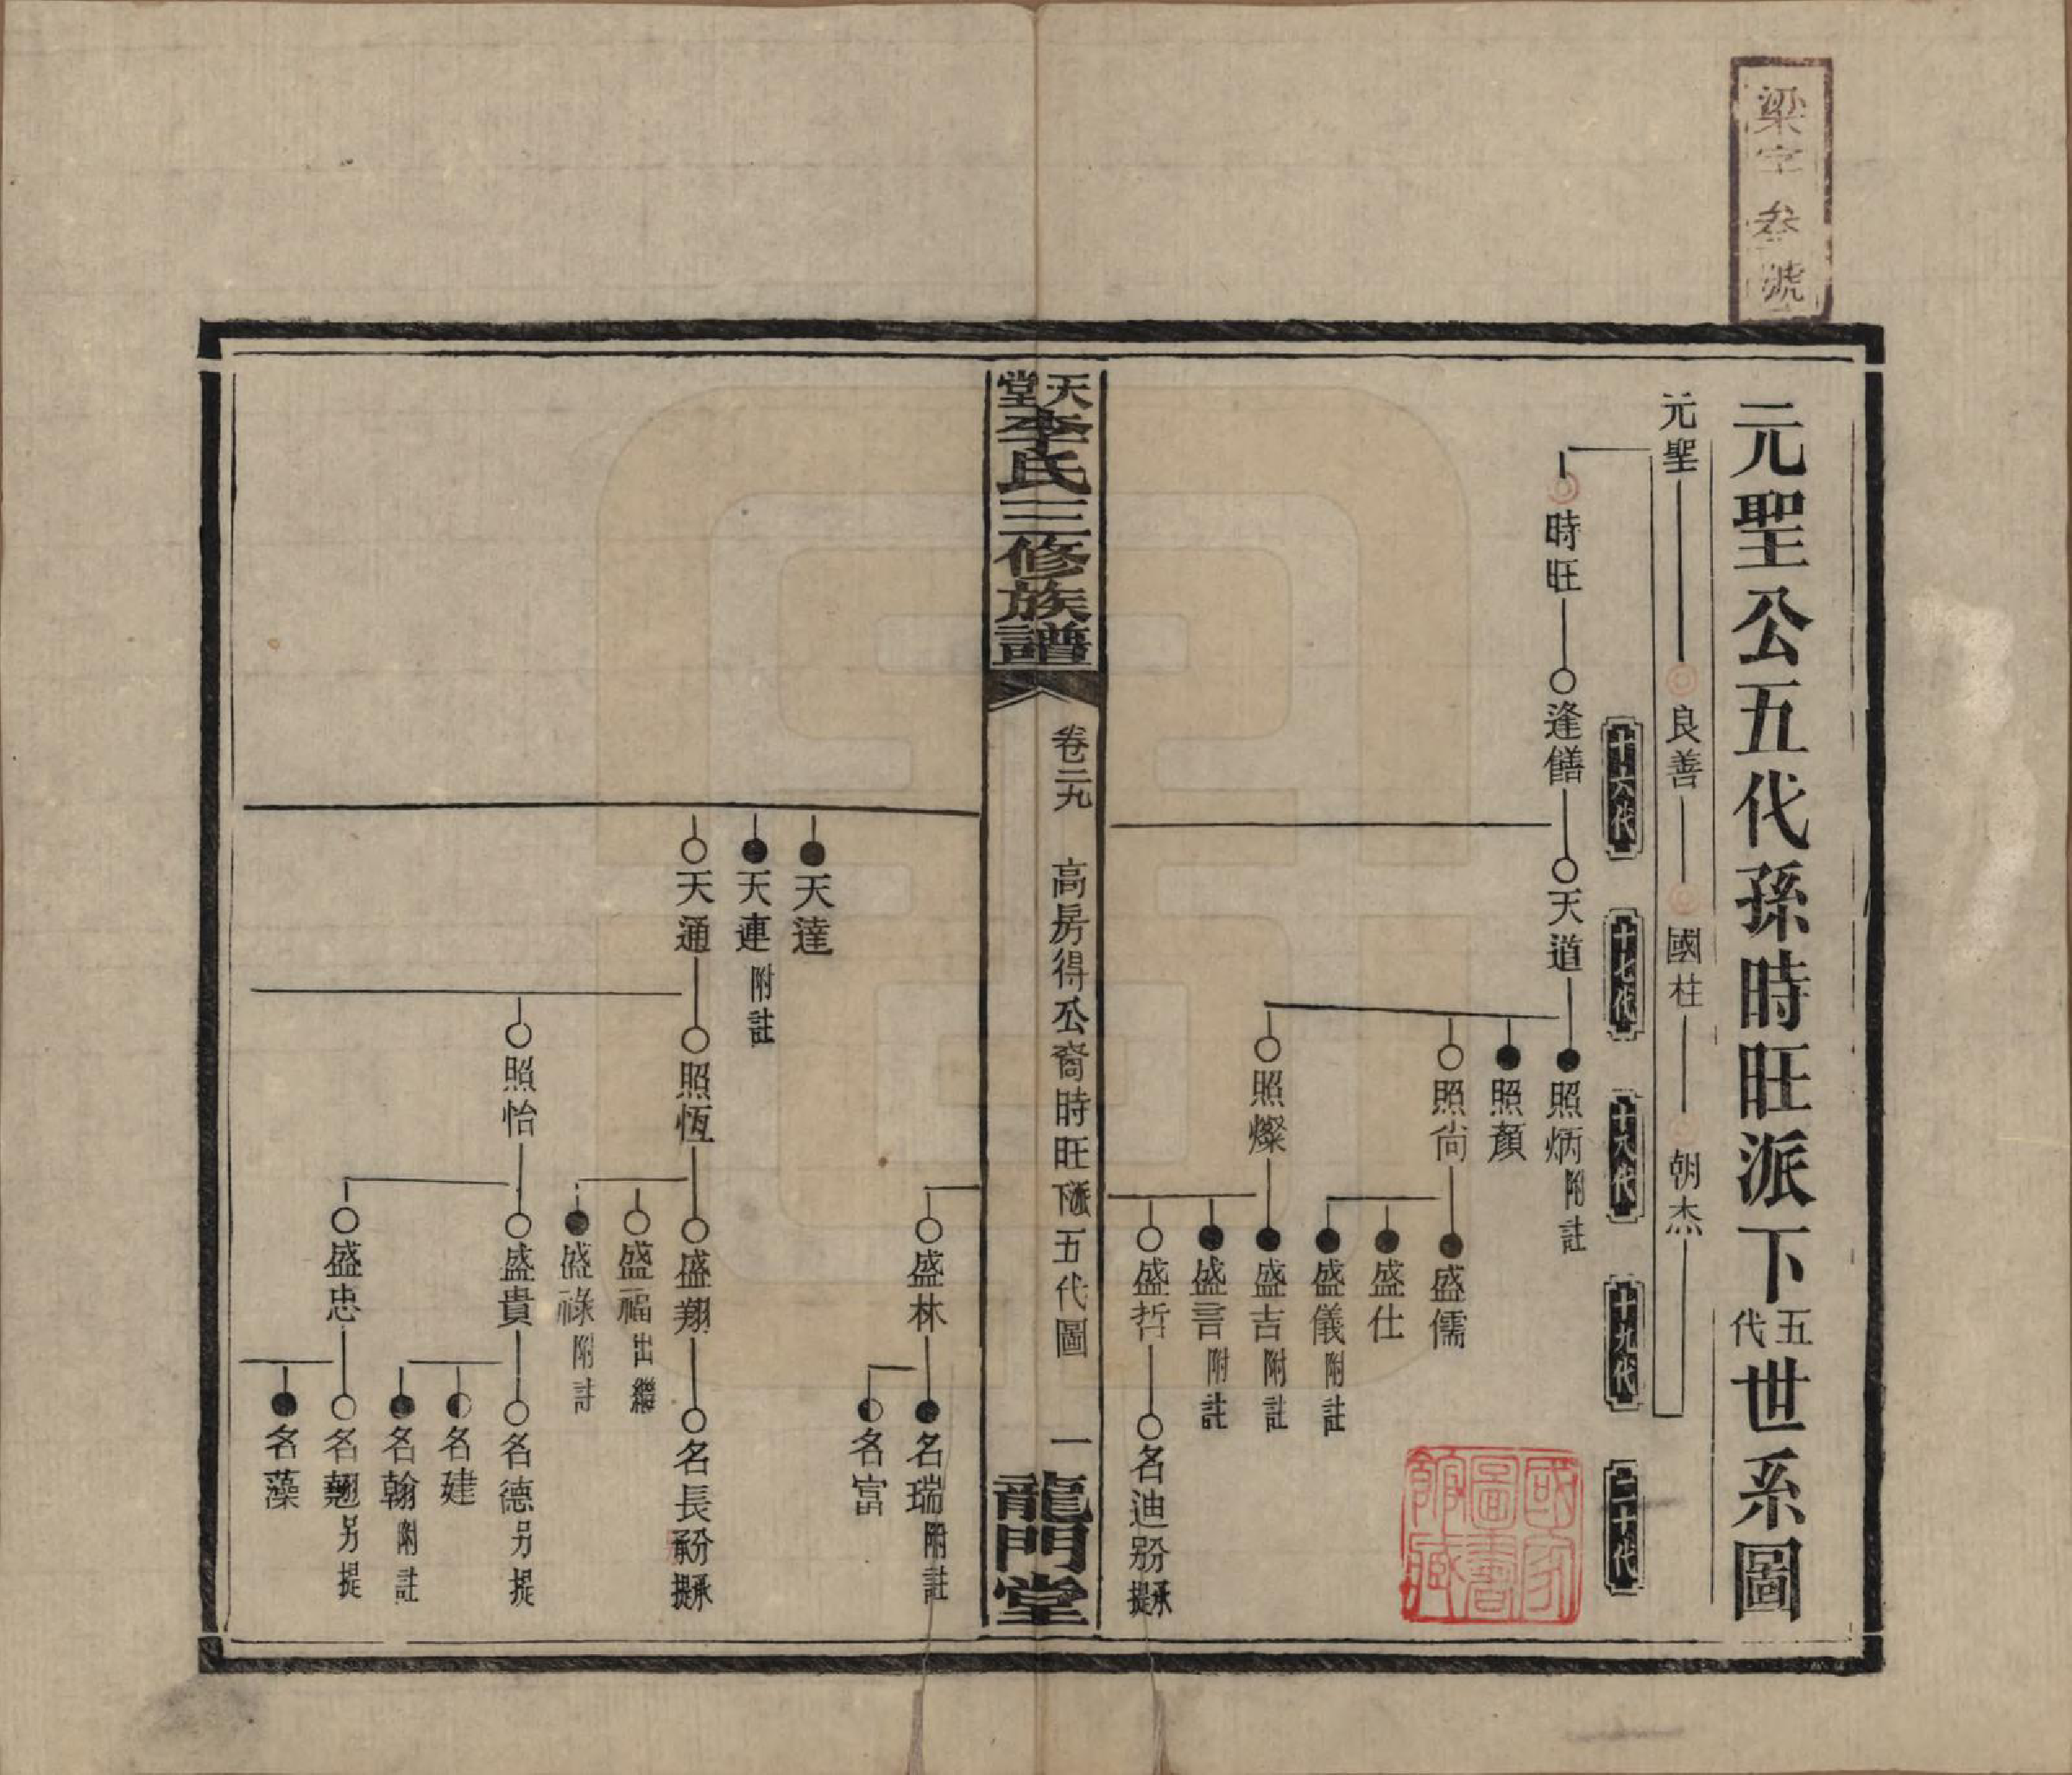 梁字叁號
元聖公五代孫時旺派下五代世系圖
元聖 良善 國柱 朝杰
十六代 十七代 十八代 十九代 二十代
時旺 逢饍 天道 照炳 附註
照顏
照尙 盛儒
盛仕
盛儀 附註
照燦 盛吉 附註
盛言 附註
盛哲 名迪
國家圖書館藏
天堂李氏三修族譜 卷二九 高房得公裔時旺派下五代圖 一 龍門堂
盛林 名瑞 附註
名富
天達
天連 附註
天通 照恆 盛翔 名長
盛福 出繼
盛祿 附註
照怡 盛貴 名德 另提
名建
名翰 附註
盛忠 名翹 另提
名藻